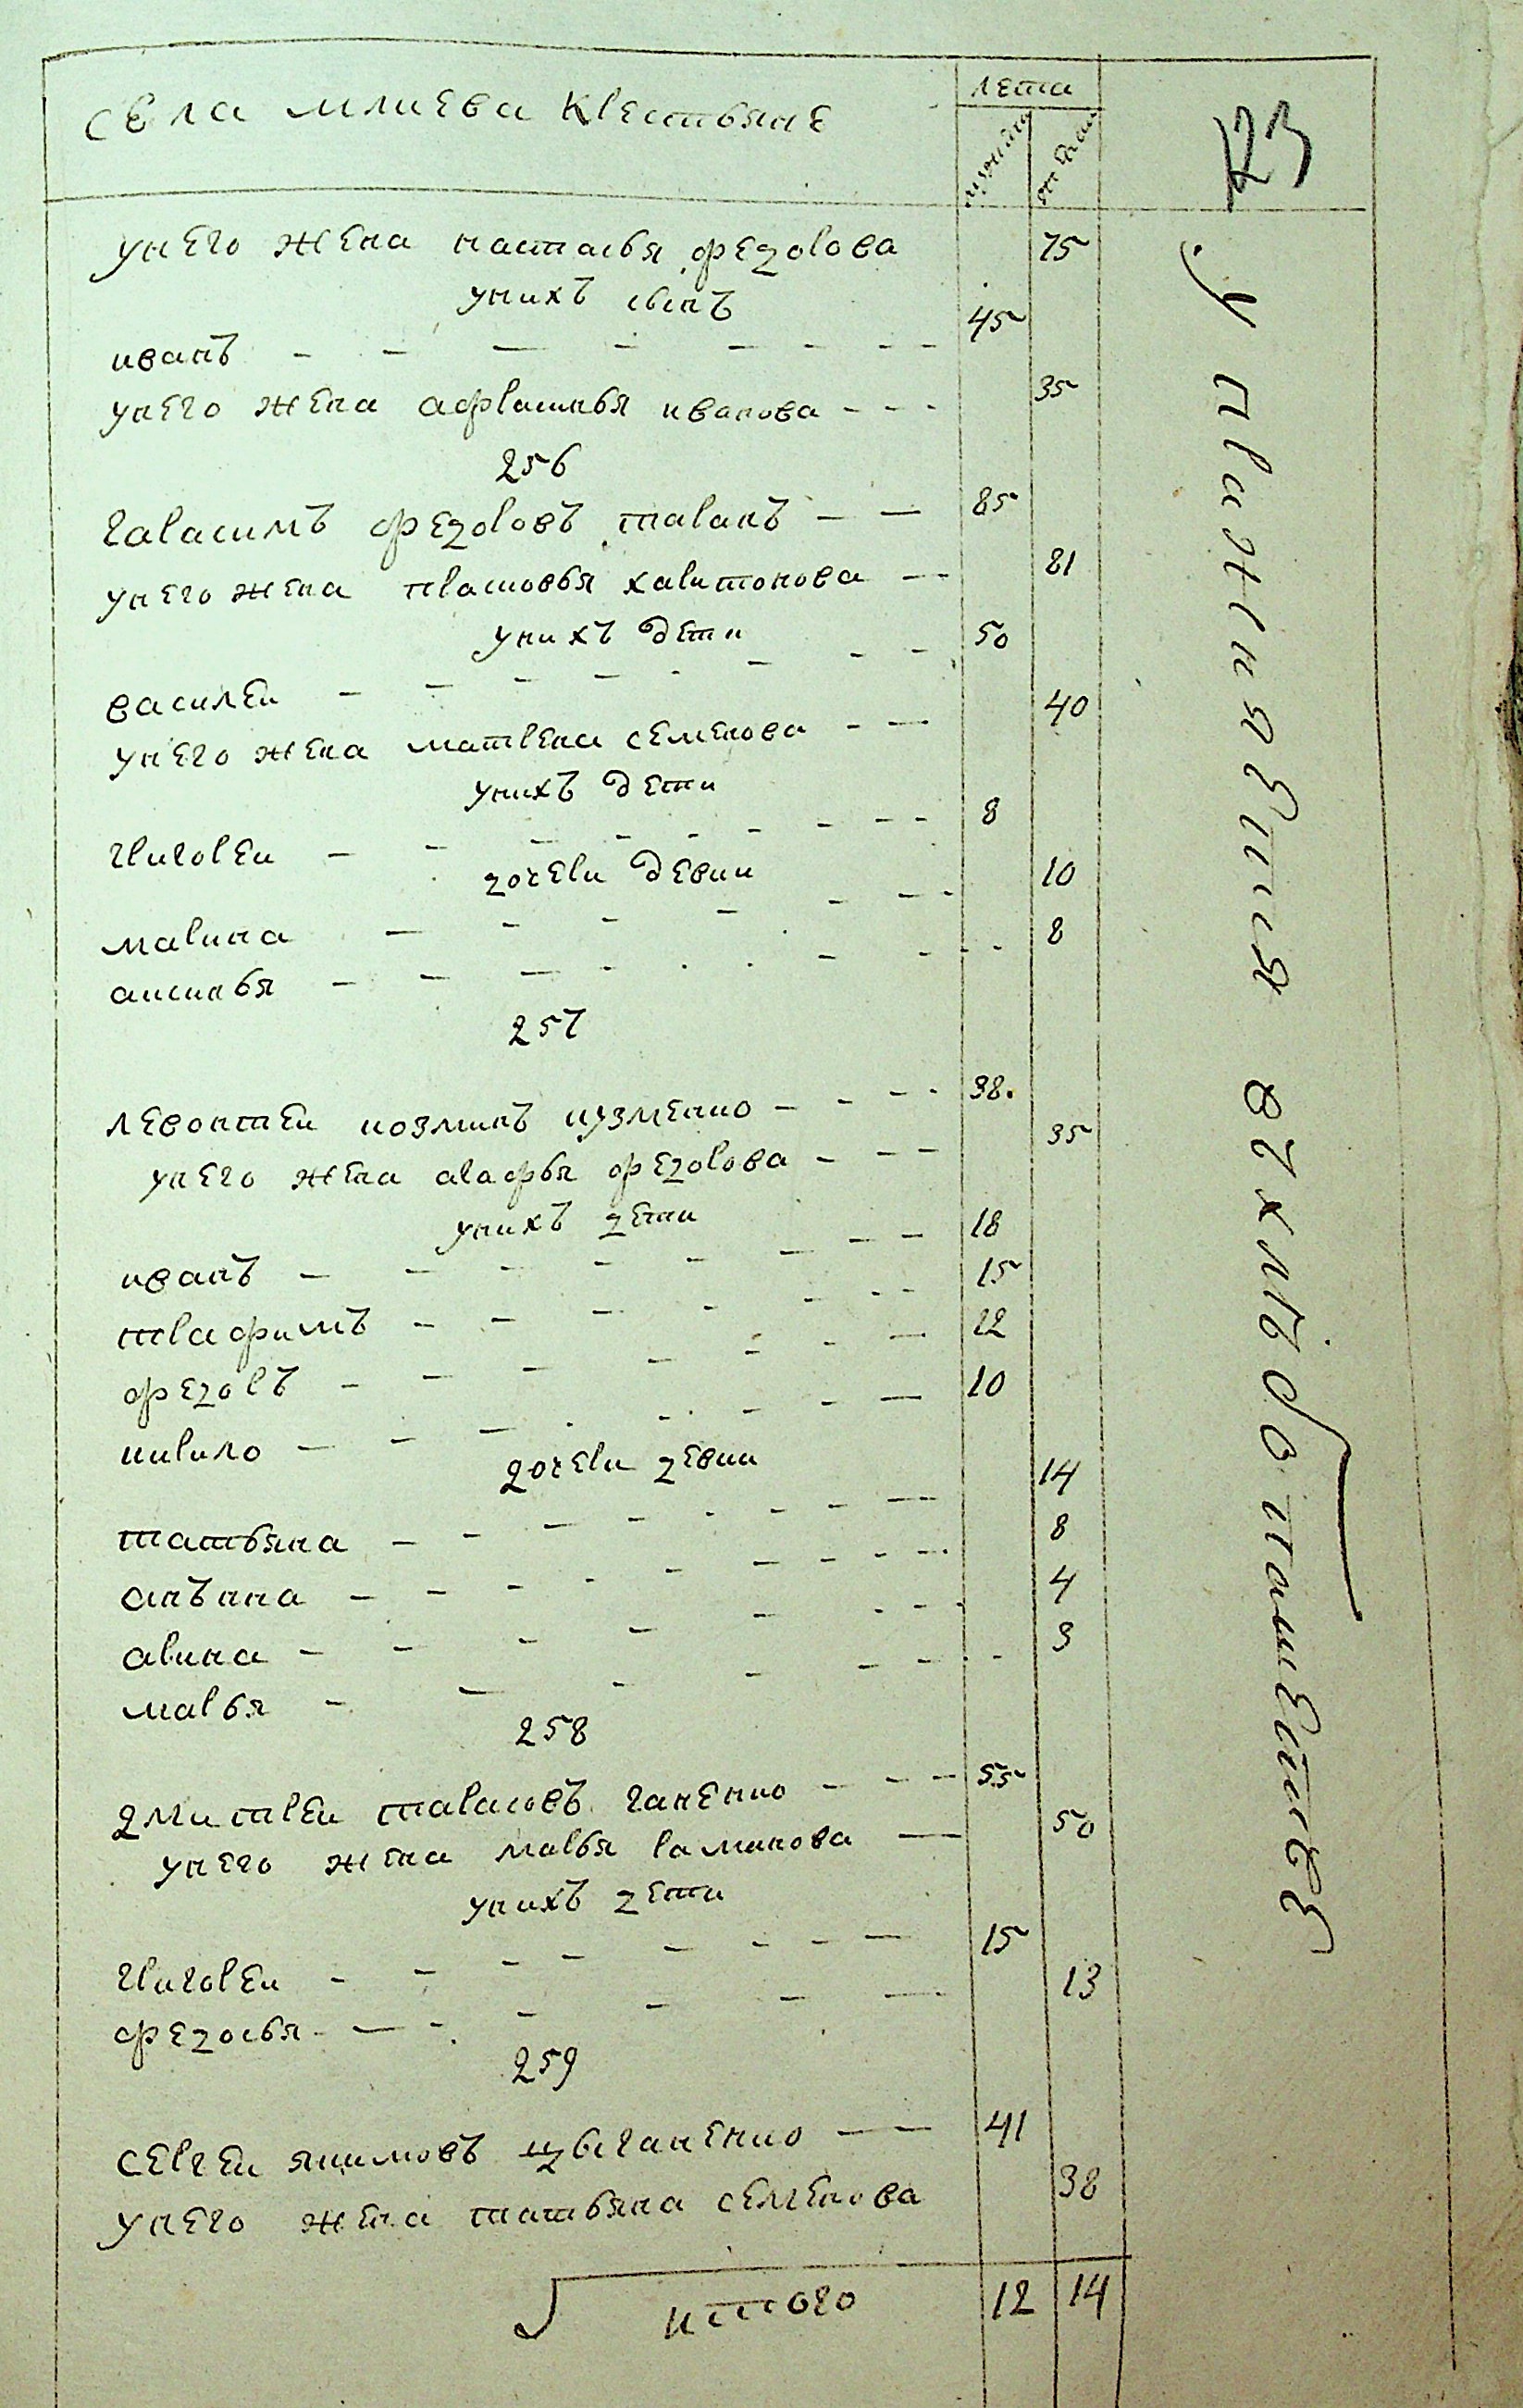 села млиева крестьяне
лета
мужеска
женска
23
унего жена настасья федорова 75
унихъ сынъ
иванъ 45
унего жена афросинья иванова 35
256
гарасимъ федоровъ таранъ 85
унего жена прасковья харитонова 81
унихъ дети
василеи 50
унего жена матрена семенова 40
унихъ дети
григореи 8
дочери девки
марина 10
аксинья 8
257
левонтеи козминъ кузменко 38
унего жена агафья федорова 35
унихъ дети
иванъ 18
трафимъ 15
федоръ 12
кирило 10
дочери девки
татьяна 14
анъна 8
арина 4
марья 3
258
дмитреи тарасовъ ганенко 55
унего жена марья романова 50
унихъ дети
григореи 15
федосья 13
259
сергеи якимовъ цыганенко 41
унего жена татьяна семенова 38
итого 12 14
упражнается вхлебопашестве